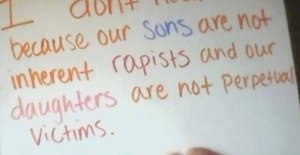 I don't
because our sons are not
inherent rapists and our
daughters are not perpetual
victims.